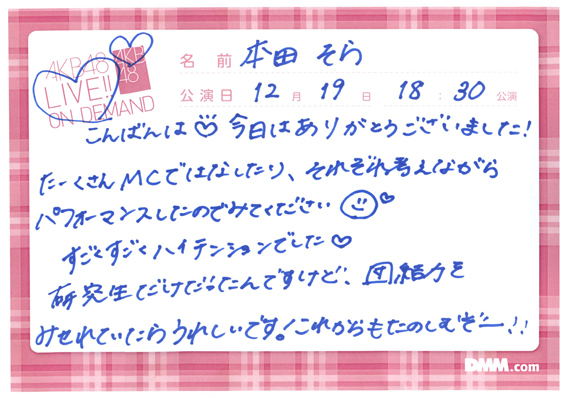 AKB48
LIVE!!
ON DEMAND
AKB
48
名前 本田 そら
公演日 12月19日 18:30公演
こんばんは♡今日はありがとうございました!
たーくさんMCではなしたり、それぞれ考えながら
パフォーマンスしたのでみてください
すごくすごくハイテンションでした♡
研究生だけだったんですけど、団結力を
みせれていたらうれしいです!これからもたのしむぞー!!
DMM.com